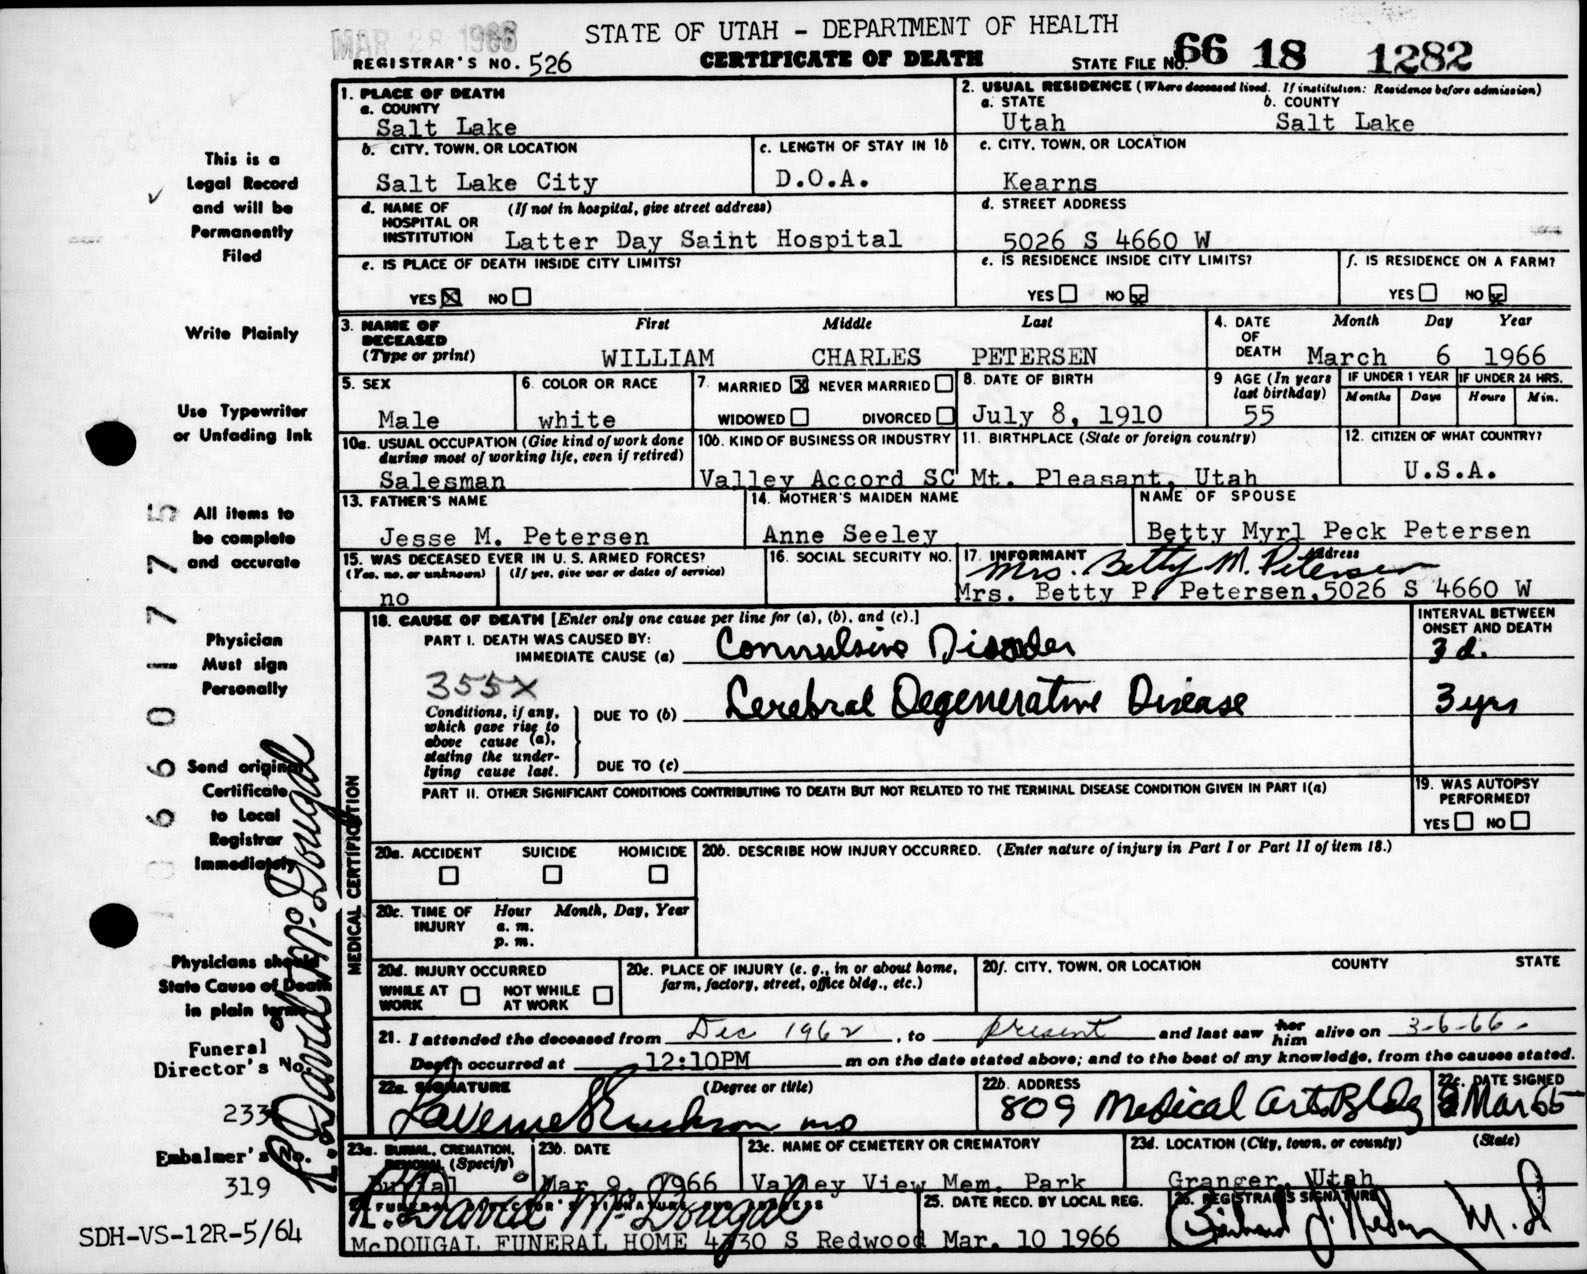 MAR 28 1966
STATE OF UTAH - DEPARTMENT OF HEALTH
REGISTRAR'S NO. 526
CERTIFICATE OF DEATH
STATE FILE NO. 66 18 1282
This is a
Legal Record
and will be
Permanently
Filed
Write Plainly
Use Typewriter
or Unfading Ink
All items to
be complete
and accurate
Physician
Must sign
Personally
Send original
Certificate
to Local
Registrar
Immediately
Physicians should
State Cause of Death
in plain terms
Funeral
Director's No.
233
Embalmer's No.
319
SDH-VS-12R-5/64
R. David McDougal
1. PLACE OF DEATH
a. COUNTY
Salt Lake
2. USUAL RESIDENCE (Where deceased lived. If institution: Residence before admission)
a. STATE b. COUNTY
Utah Salt Lake
b. CITY, TOWN, OR LOCATION
Salt Lake City
c. LENGTH OF STAY IN 1b
D.O.A.
c. CITY, TOWN, OR LOCATION
Kearns
d. NAME OF HOSPITAL OR INSTITUTION (If not in hospital, give street address)
Latter Day Saint Hospital
d. STREET ADDRESS
5026 S 4660 W
e. IS PLACE OF DEATH INSIDE CITY LIMITS?
YES NO
e. IS RESIDENCE INSIDE CITY LIMITS?
YES NO
f. IS RESIDENCE ON A FARM?
YES NO
3. NAME OF DECEASED (Type or print)
First Middle Last
WILLIAM CHARLES PETERSEN
4. DATE OF DEATH
Month Day Year
March 6 1966
5. SEX
Male
6. COLOR OR RACE
white
7. MARRIED NEVER MARRIED
WIDOWED DIVORCED
8. DATE OF BIRTH
July 8, 1910
9 AGE (In years last birthday)
55
IF UNDER 1 YEAR
Months Days
IF UNDER 24 HRS.
Hours Min.
10a. USUAL OCCUPATION (Give kind of work done
during most of working life, even if retired)
Salesman
10b. KIND OF BUSINESS OR INDUSTRY
Valley Accord SC
11. BIRTHPLACE (State or foreign country)
Mt. Pleasant, Utah
12. CITIZEN OF WHAT COUNTRY?
U.S.A.
13. FATHER'S NAME
Jesse M. Petersen
14. MOTHER'S MAIDEN NAME
Anne Seeley
NAME OF SPOUSE
Betty Myrl Peck Petersen
15. WAS DECEASED EVER IN U. S. ARMED FORCES?
(Yes, no, or unknown) (If yes, give war or dates of service)
no
16. SOCIAL SECURITY NO.
17. INFORMANT Address
Mrs. Betty M. Petersen
Mrs. Betty P. Petersen, 5026 S 4660 W
18. CAUSE OF DEATH [Enter only one cause per line for (a), (b), and (c).]
INTERVAL BETWEEN
ONSET AND DEATH
PART I. DEATH WAS CAUSED BY:
IMMEDIATE CAUSE (a) Convulsive Disorder 3 d.
355X
Conditions, if any,
which gave rise to
above cause (a),
stating the under-
lying cause last.
DUE TO (b) Cerebral Degenerative Disease 3 yrs
DUE TO (c)
PART II. OTHER SIGNIFICANT CONDITIONS CONTRIBUTING TO DEATH BUT NOT RELATED TO THE TERMINAL DISEASE CONDITION GIVEN IN PART I(a)
19. WAS AUTOPSY
PERFORMED?
YES NO
MEDICAL CERTIFICATION
20a. ACCIDENT SUICIDE HOMICIDE
20b. DESCRIBE HOW INJURY OCCURRED. (Enter nature of injury in Part I or Part II of item 18.)
20c. TIME OF INJURY
Hour Month, Day, Year
a. m.
p. m.
20d. INJURY OCCURRED
WHILE AT WORK NOT WHILE AT WORK
20e. PLACE OF INJURY (e. g., in or about home,
farm, factory, street, office bldg., etc.)
20f. CITY, TOWN, OR LOCATION COUNTY STATE
21. I attended the deceased from Dec 1962, to present and last saw her him alive on 3-6-66.
Death occurred at 12:10PM m on the date stated above; and to the best of my knowledge, from the causes stated.
22a. SIGNATURE (Degree or title)
LaVerne S Erickson MD
22b. ADDRESS
809 Medical Arts Bldg
22c. DATE SIGNED
8 Mar 65
23a. BURIAL, CREMATION, REMOVAL (Specify)
Burial
23b. DATE
Mar 9, 1966
23c. NAME OF CEMETERY OR CREMATORY
Valley View Mem. Park
23d. LOCATION (City, town, or county) (State)
Granger, Utah
R. David McDougal
McDOUGAL FUNERAL HOME 4330 S Redwood
25. DATE RECD. BY LOCAL REG.
Mar. 10 1966
26. REGISTRAR'S SIGNATURE
M. D.